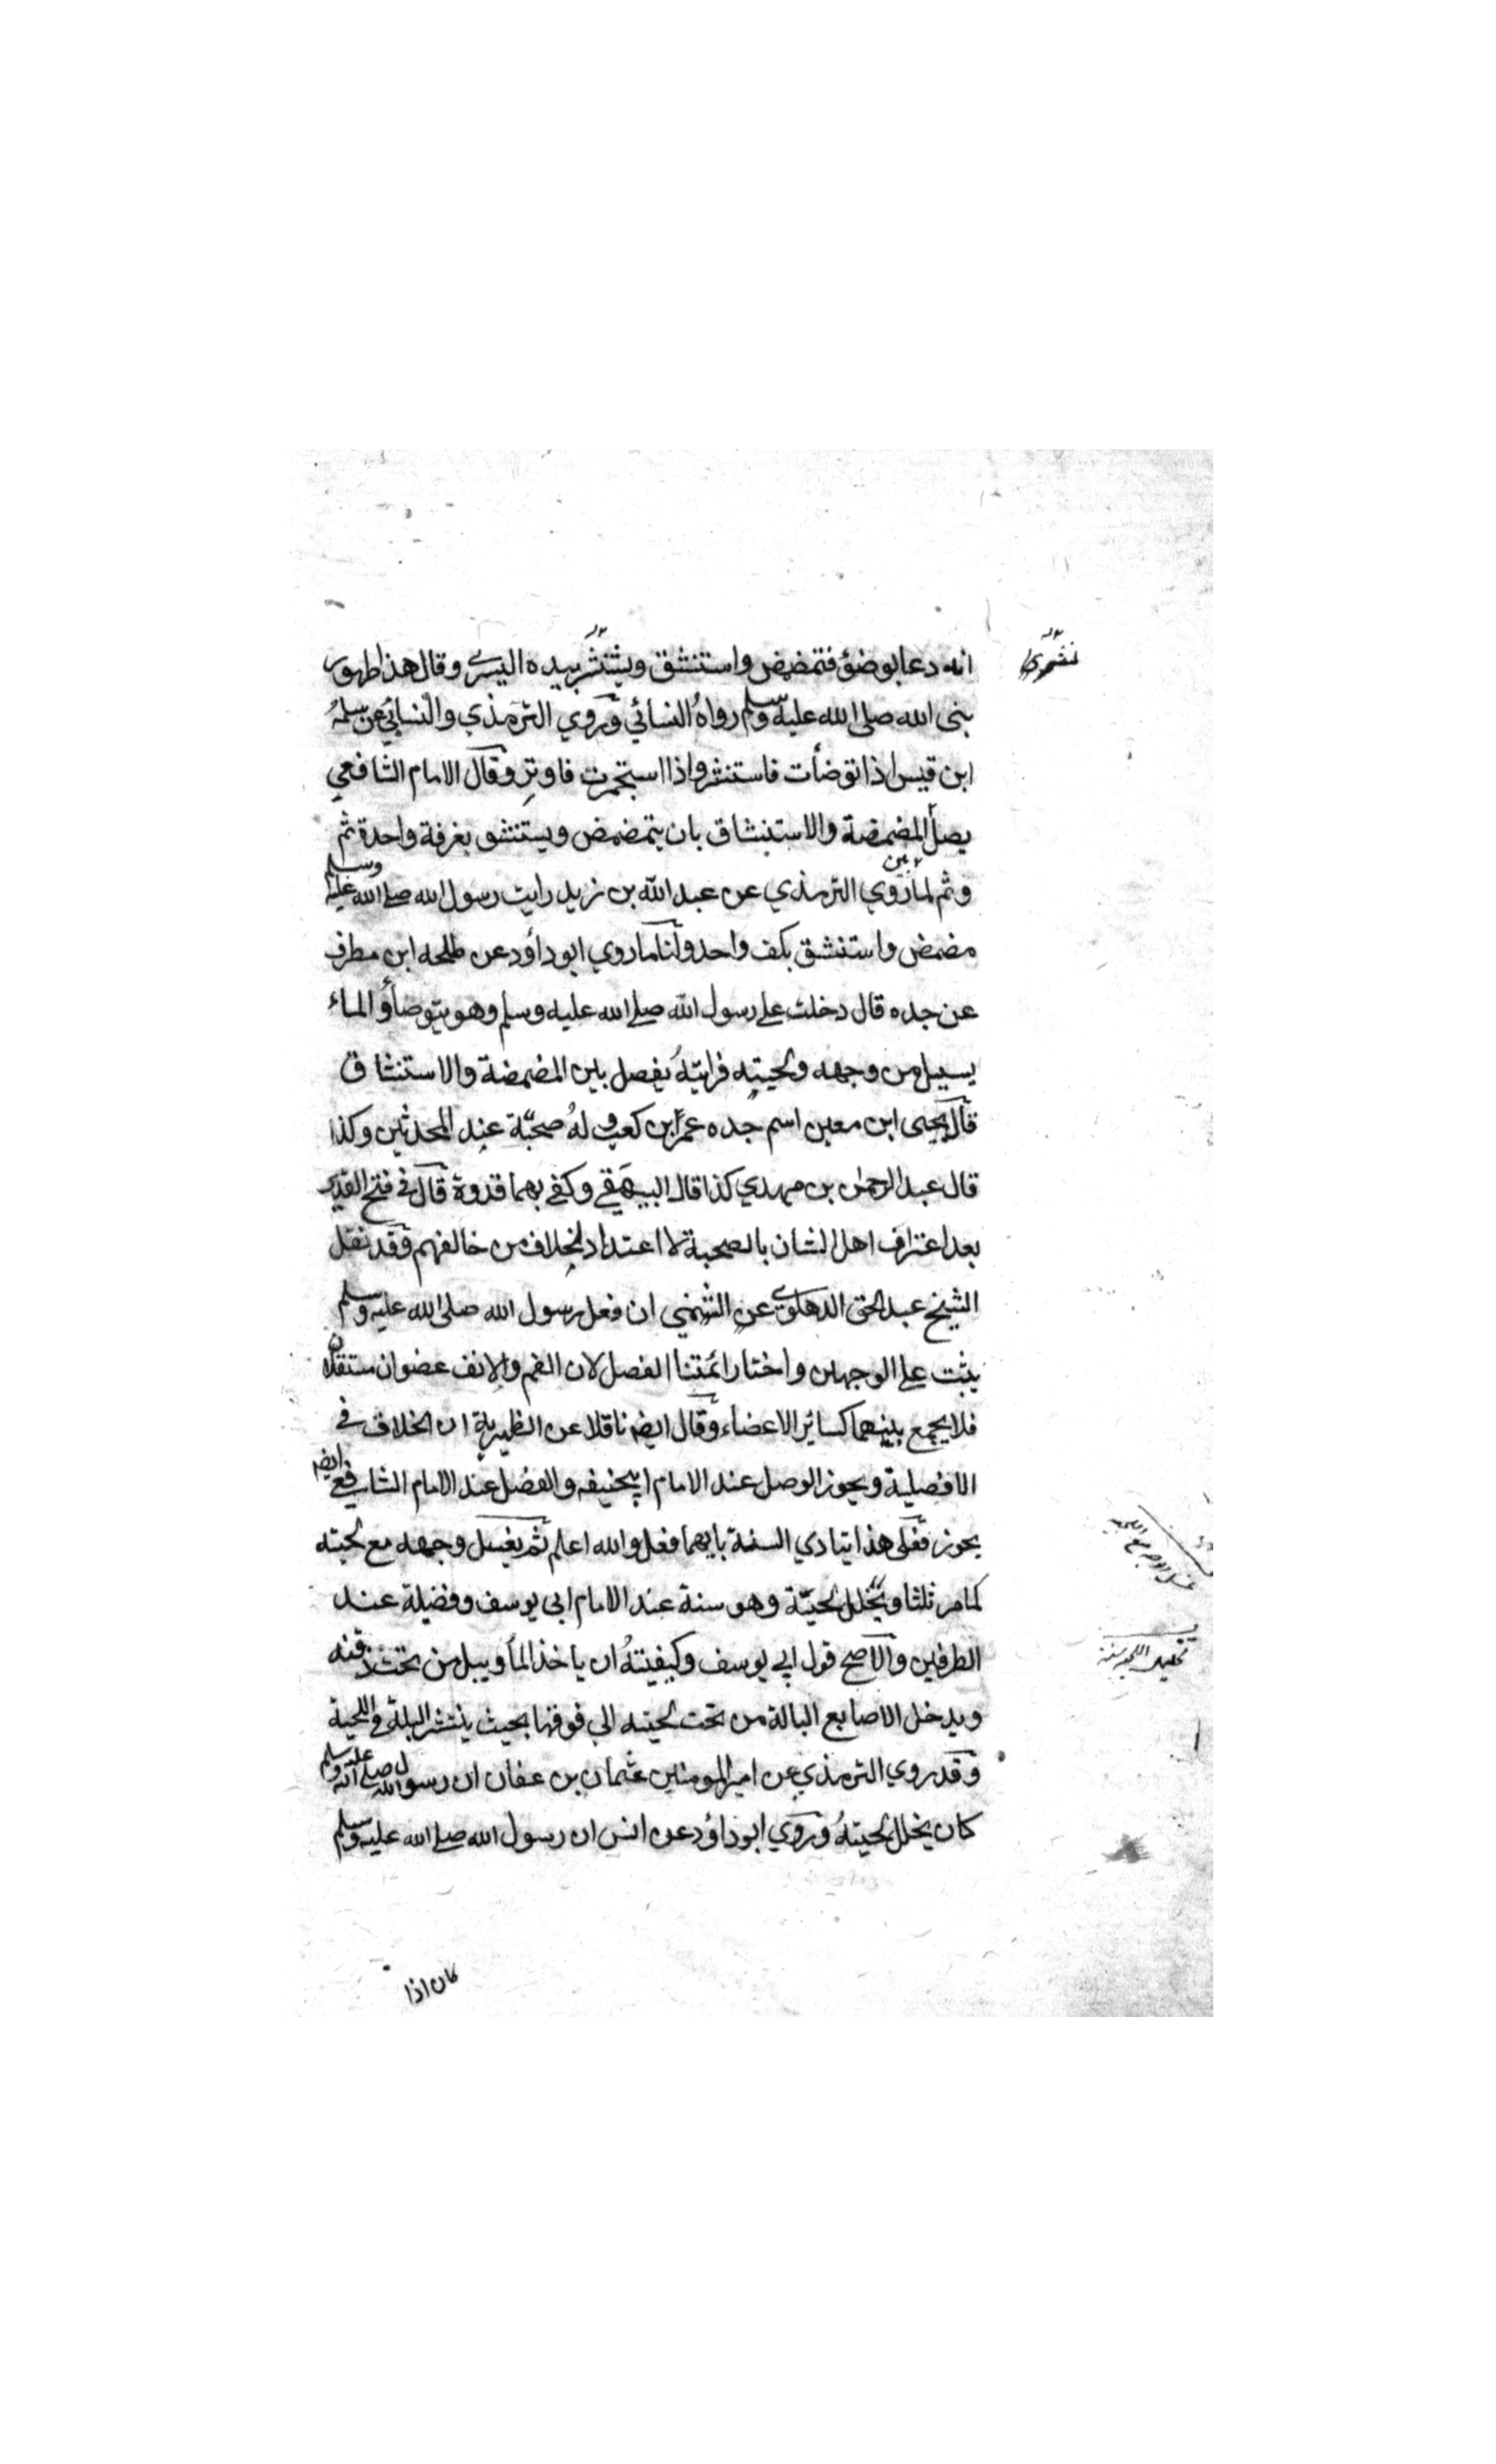 انه دعا بوضؤ فتمضمض واستنشق ويثتثر بيده اليسرى وقال هذا طهور
بنى الله صلى الله عليه وسلم رواهُ النسائي وروي الترمذي والنسائي عن سلمهُ
ابن قيس اذا توضأت فاستنثر واذا استجمرت فاوتر وقال الامام الشافعي
يصل المضمضة والاستنشاق بان يتمضمض ويستنشق بغرفة واحدة ثم
وثم لما روي الترمذي عن عبد الله بن زيد رايت رسول الله صلے الله عليه وسلم
مضمض واستنشق بكف واحد ولنا ما روي ابو داؤد عن طلحه ابن مطرف
عن جده قال دخلت علے رسول الله صلے الله عليه وسلم وهو يتوضأ والماء
يسيل من وجهه ولحيته فرايتهُ يفصل باين المضمضة والاستنشاق
قال يحيى ابن معين اسم جده عمر ابن كعب و لهُ صحبّة عند المحدثين وكذا
قال عبد الرحمن بن مهدي كذا قال البيهقے وكفے بهما قدوة قال فے فتح القدير
بعد اعتراف اهل الشان بالصحبة لا اعتداد بخلاف من خالفهم وقد نقل
الشيخ عبد الحق الدهلوي عن الشمني ان فعل رسول الله صلى الله عليه وسلم
يثبت علے الوجهين واختار ائمتنا الفصل لان الفم والانف عضوان مستقلان
فلا يجمع بينهما كسائر الاعضاء وقال ايضا ناقلا عن الظهيرية ان الخلاف فے
الافصلية ويجوز الوصل عند الامام ابيحنيفه والفصل عند الامام الشافعے ايضا
يجوز فعلى هذا يتادي السنة بايهما فعل والله اعلم ثم يغسل وجهه مع لحيته
كما مر ثلثا ويخلل لحيتة وهو سنة عند الامام ابى يوسف وفضيلة عند
الطرفين والاصح قول ابي يوسف وكيفيتهُ ان ياخذ الماء ويبل من تحت ذقنه
ويدخل الاصابع البالة من تحت لحيته الي فوقها بحيث ينتشر البلة فے اللحية
وقد روي الترمذي عن امير المومنين عثمان بن عفان ان رسول الله صلے الله عليه وسلم
كان يخلل لحيتهُ وروي ابو داؤد عن انس ان رسول الله صلے الله عليه وسلم
كان اذا
غسل الوجه مع اللحية
تخليل اللحية سنة